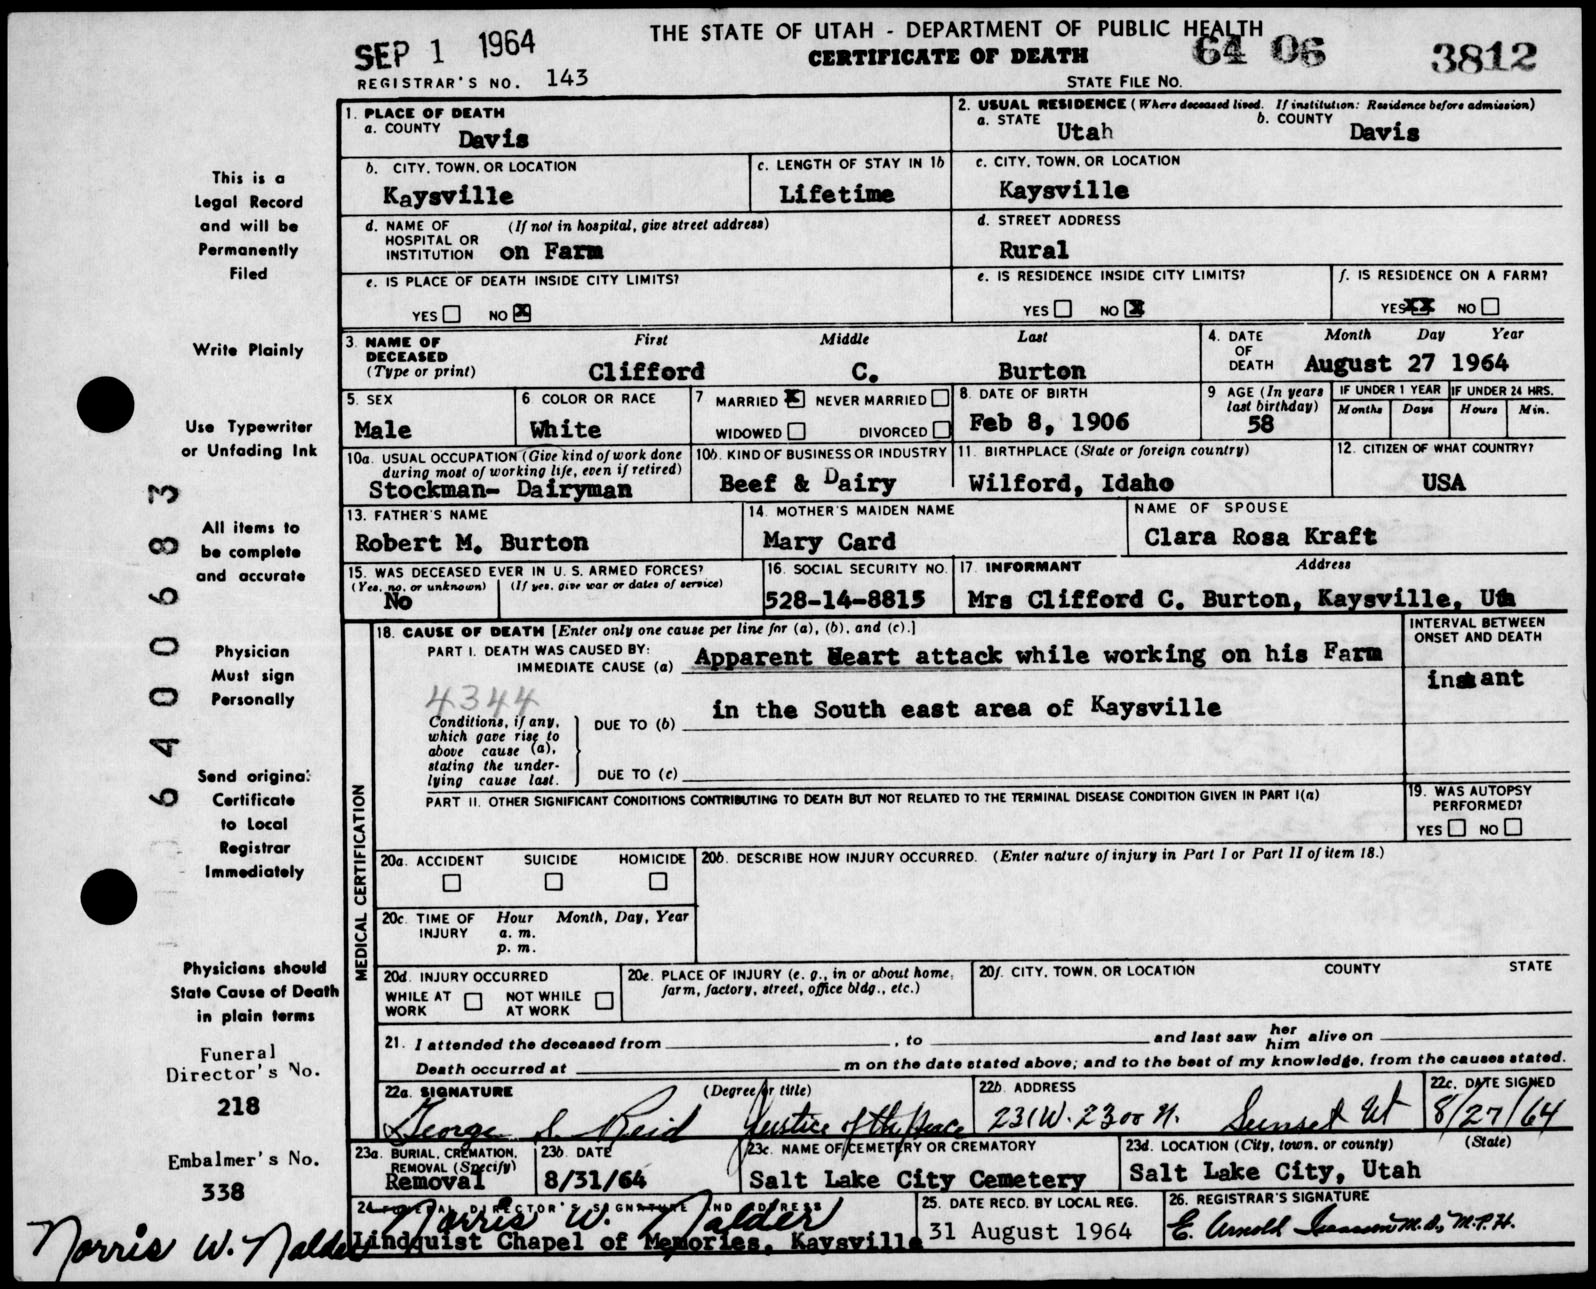 SEP 1 1964
THE STATE OF UTAH - DEPARTMENT OF PUBLIC HEALTH
CERTIFICATE OF DEATH
64 06 3812
REGISTRAR'S NO. 143
STATE FILE NO.
1. PLACE OF DEATH
a. COUNTY Davis
2. USUAL RESIDENCE (Where deceased lived. If institution: Residence before admission)
a. STATE Utah b. COUNTY Davis
b. CITY, TOWN, OR LOCATION
Kaysville
c. LENGTH OF STAY IN 1b
Lifetime
c. CITY, TOWN, OR LOCATION
Kaysville
d. NAME OF HOSPITAL OR INSTITUTION (If not in hospital, give street address)
on Farm
d. STREET ADDRESS
Rural
e. IS PLACE OF DEATH INSIDE CITY LIMITS?
YES NO X
e. IS RESIDENCE INSIDE CITY LIMITS?
YES NO X
f. IS RESIDENCE ON A FARM?
YES XX NO
3. NAME OF DECEASED (Type or print)
First Middle Last
Clifford C. Burton
4. DATE OF DEATH
Month Day Year
August 27 1964
5. SEX
Male
6 COLOR OR RACE
White
7 MARRIED X NEVER MARRIED
WIDOWED DIVORCED
8. DATE OF BIRTH
Feb 8, 1906
9 AGE (In years last birthday)
58
IF UNDER 1 YEAR IF UNDER 24 HRS.
Months Days Hours Min.
10a. USUAL OCCUPATION (Give kind of work done during most of working life, even if retired)
Stockman- Dairyman
10b. KIND OF BUSINESS OR INDUSTRY
Beef & Dairy
11. BIRTHPLACE (State or foreign country)
Wilford, Idaho
12. CITIZEN OF WHAT COUNTRY?
USA
13. FATHER'S NAME
Robert M. Burton
14. MOTHER'S MAIDEN NAME
Mary Card
NAME OF SPOUSE
Clara Rosa Kraft
15. WAS DECEASED EVER IN U. S. ARMED FORCES?
(Yes, no, or unknown) (If yes, give war or dates of service)
No
16. SOCIAL SECURITY NO.
528-14-8815
17. INFORMANT Address
Mrs Clifford C. Burton, Kaysville, Uta
MEDICAL CERTIFICATION
18. CAUSE OF DEATH [Enter only one cause per line for (a), (b), and (c).]
PART I. DEATH WAS CAUSED BY:
IMMEDIATE CAUSE (a) Apparent Heart attack while working on his Farm
INTERVAL BETWEEN ONSET AND DEATH
instant
4344
Conditions, if any, which gave rise to above cause (a), stating the underlying cause last.
DUE TO (b) in the South east area of Kaysville
DUE TO (c)
PART II. OTHER SIGNIFICANT CONDITIONS CONTRIBUTING TO DEATH BUT NOT RELATED TO THE TERMINAL DISEASE CONDITION GIVEN IN PART I(a)
19. WAS AUTOPSY PERFORMED?
YES NO
20a. ACCIDENT SUICIDE HOMICIDE
20b. DESCRIBE HOW INJURY OCCURRED. (Enter nature of injury in Part I or Part II of item 18.)
20c. TIME OF INJURY Hour Month, Day, Year
a. m.
p. m.
20d. INJURY OCCURRED
WHILE AT WORK NOT WHILE AT WORK
20e. PLACE OF INJURY (e. g., in or about home, farm, factory, street, office bldg., etc.)
20f. CITY, TOWN, OR LOCATION COUNTY STATE
21. I attended the deceased from , to and last saw her him alive on
Death occurred at m on the date stated above; and to the best of my knowledge, from the causes stated.
22a. SIGNATURE (Degree or title)
George S. Reid Justice of the Peace
22b. ADDRESS
231 W. 2300 N. Sunset Ut
22c. DATE SIGNED
8/27/64
23a. BURIAL, CREMATION, REMOVAL (Specify)
Removal
23b. DATE
8/31/64
23c. NAME OF CEMETERY OR CREMATORY
Salt Lake City Cemetery
23d. LOCATION (City, town, or county) (State)
Salt Lake City, Utah
24 FUNERAL DIRECTOR'S SIGNATURE AND ADDRESS
Norris W. Nalder
Lindquist Chapel of Memories, Kaysville
25. DATE RECD. BY LOCAL REG.
31 August 1964
26. REGISTRAR'S SIGNATURE
E. Arnold Isaacson M.D., M.P.H.
This is a
Legal Record
and will be
Permanently
Filed
Write Plainly
Use Typewriter
or Unfading Ink
All items to
be complete
and accurate
Physician
Must sign
Personally
Send original
Certificate
to Local
Registrar
Immediately
Physicians should
State Cause of Death
in plain terms
Funeral
Director's No.
218
Embalmer's No.
338
Norris W. Nalder
64006683